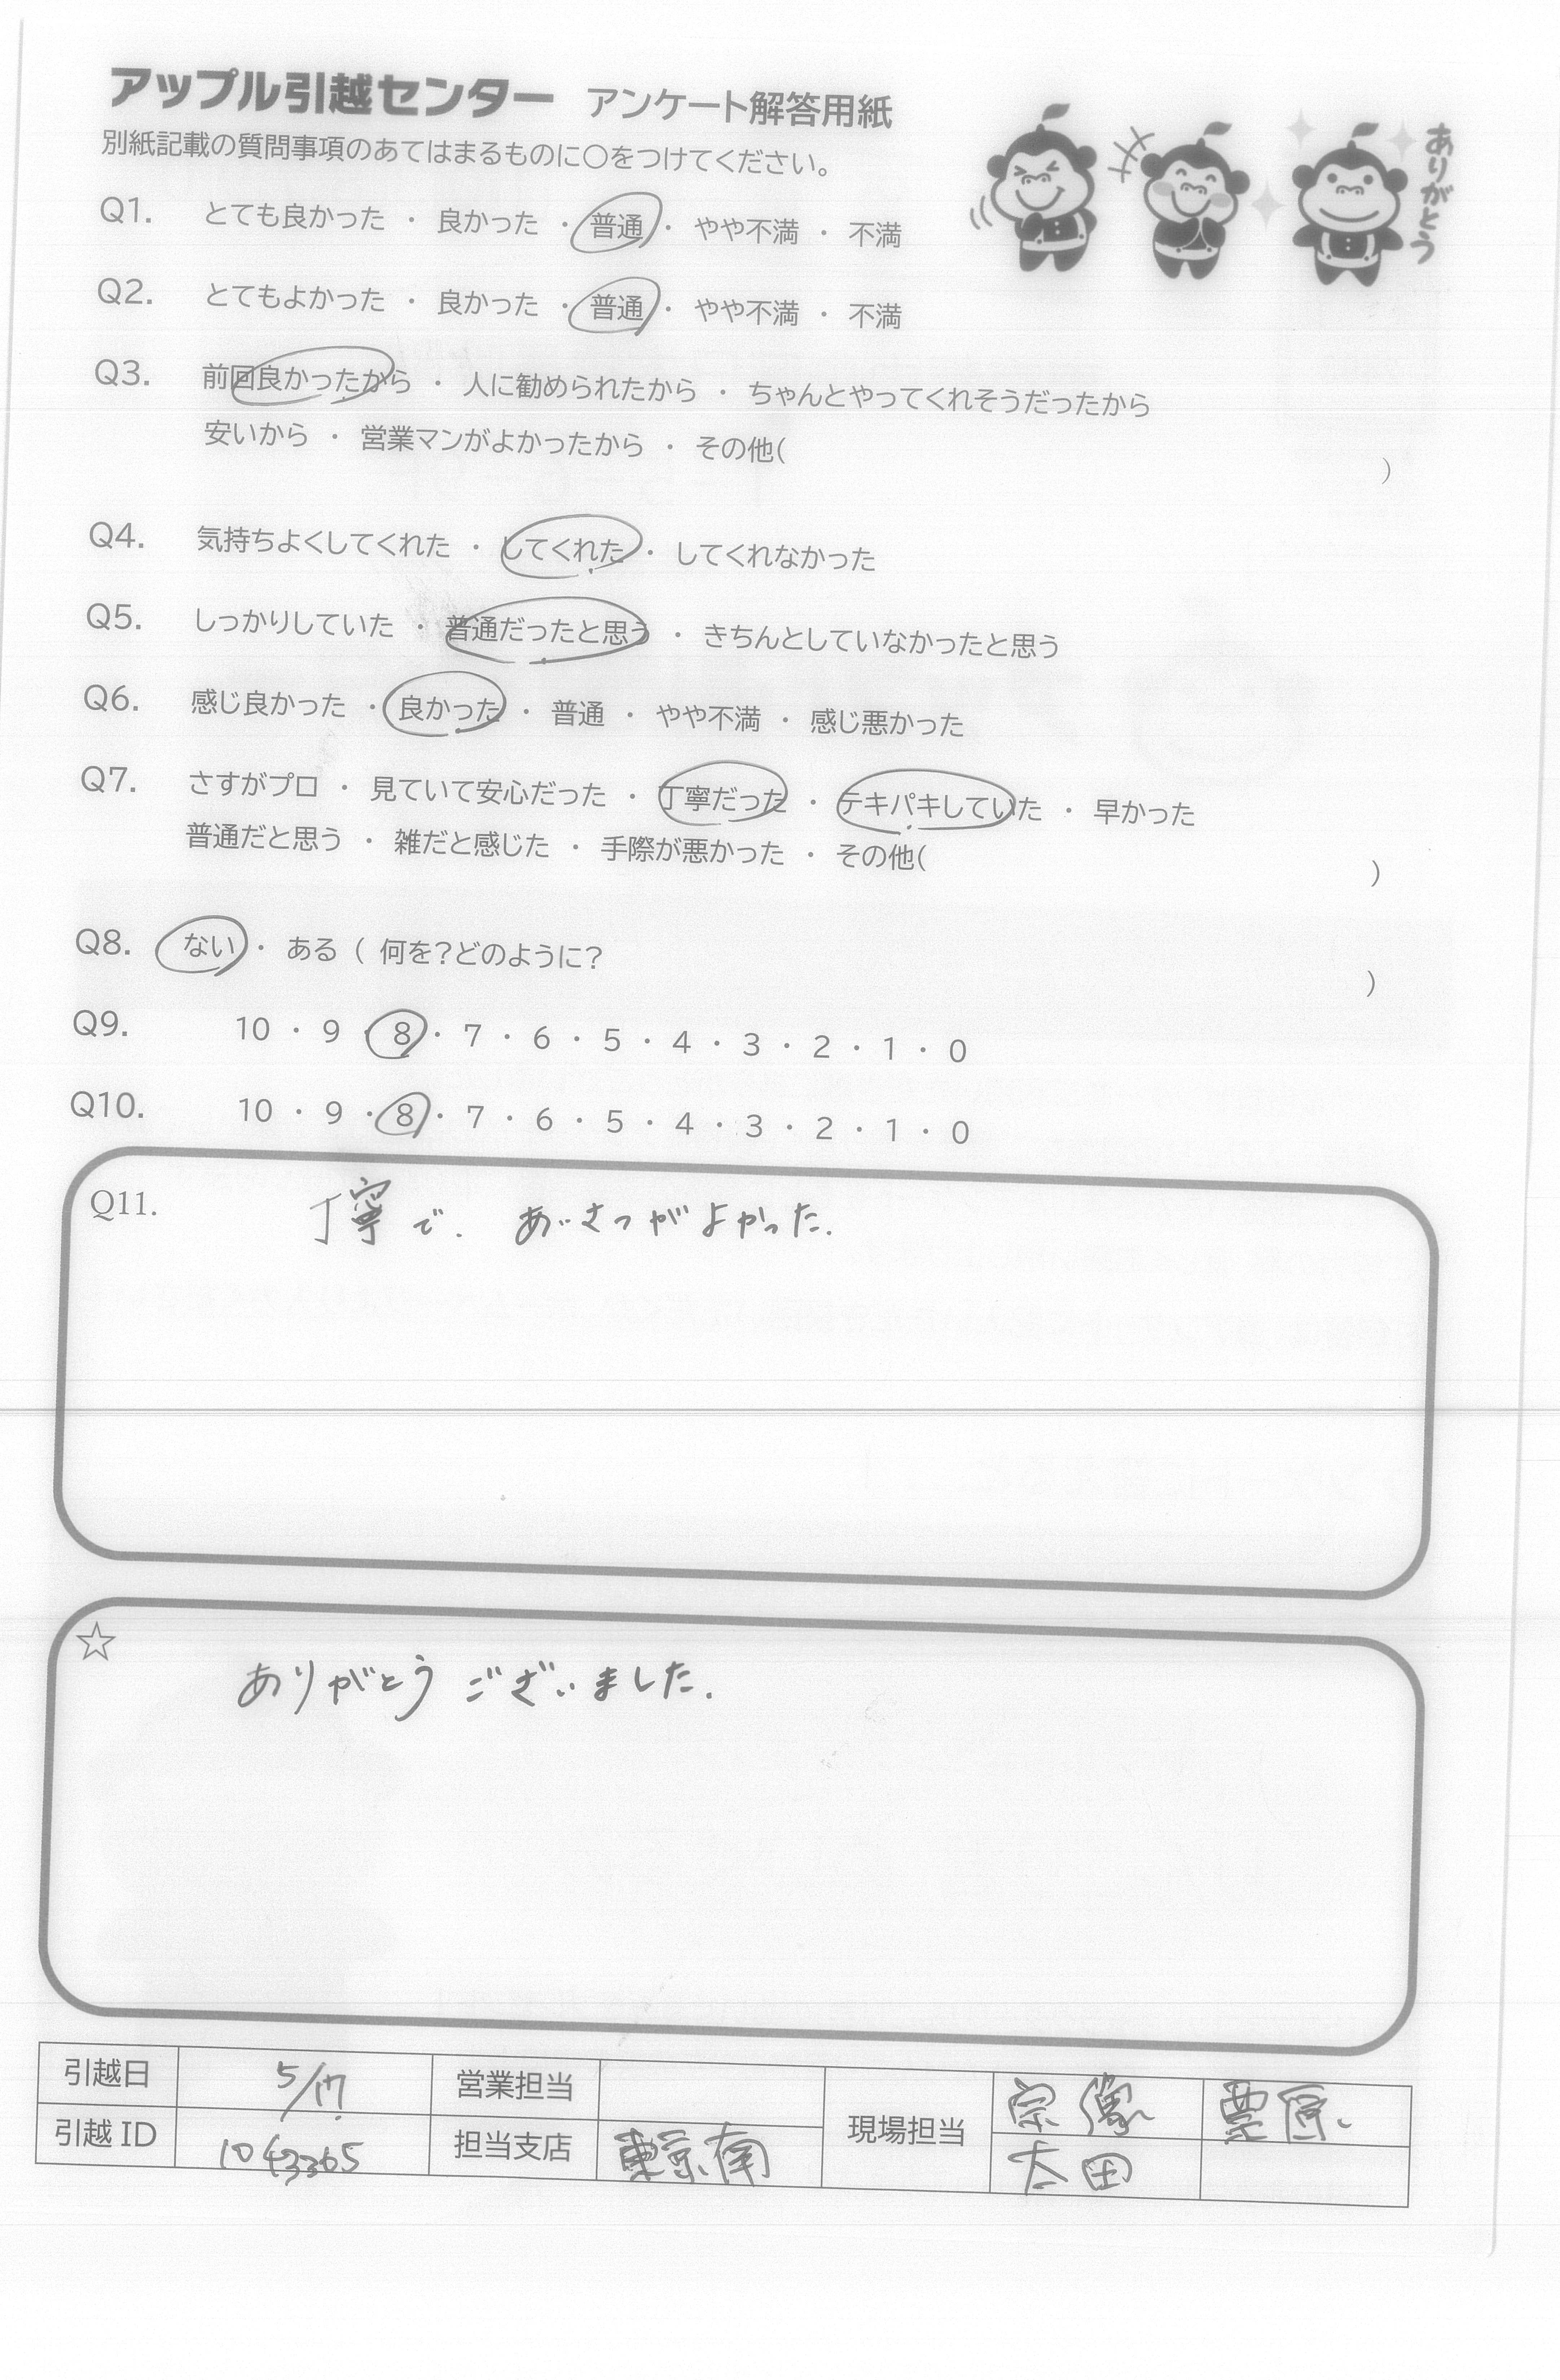 アップル引越センター アンケート解答用紙
別紙記載の質問事項のあてはまるものに○をつけてください。
ありがとう
Q1. とても良かった ・ 良かった ・ 普通 ・ やや不満 ・ 不満
Q2. とてもよかった ・ 良かった ・ 普通 ・ やや不満 ・ 不満
Q3. 前回良かったから ・ 人に勧められたから ・ ちゃんとやってくれそうだったから
安いから ・ 営業マンがよかったから ・ その他( )
Q4. 気持ちよくしてくれた ・ してくれた ・ してくれなかった
Q5. しっかりしていた ・ 普通だったと思う ・ きちんとしていなかったと思う
Q6. 感じ良かった ・ 良かった ・ 普通 ・ やや不満 ・ 感じ悪かった
Q7. さすがプロ ・ 見ていて安心だった ・ 丁寧だった ・ テキパキしていた ・ 早かった
普通だと思う ・ 雑だと感じた ・ 手際が悪かった ・ その他( )
Q8. ない ・ ある ( 何を?どのように? )
Q9. 10 ・ 9 ・ 8 ・ 7 ・ 6 ・ 5 ・ 4 ・ 3 ・ 2 ・ 1 ・ 0
Q10. 10 ・ 9 ・ 8 ・ 7 ・ 6 ・ 5 ・ 4 ・ 3 ・ 2 ・ 1 ・ 0
Q11. 丁寧で、あいさつがよかった.
☆ ありがとうございました.
引越日 5/17 営業担当 現場担当 宗像
引越ID 1043365 担当支店 東京南 太田